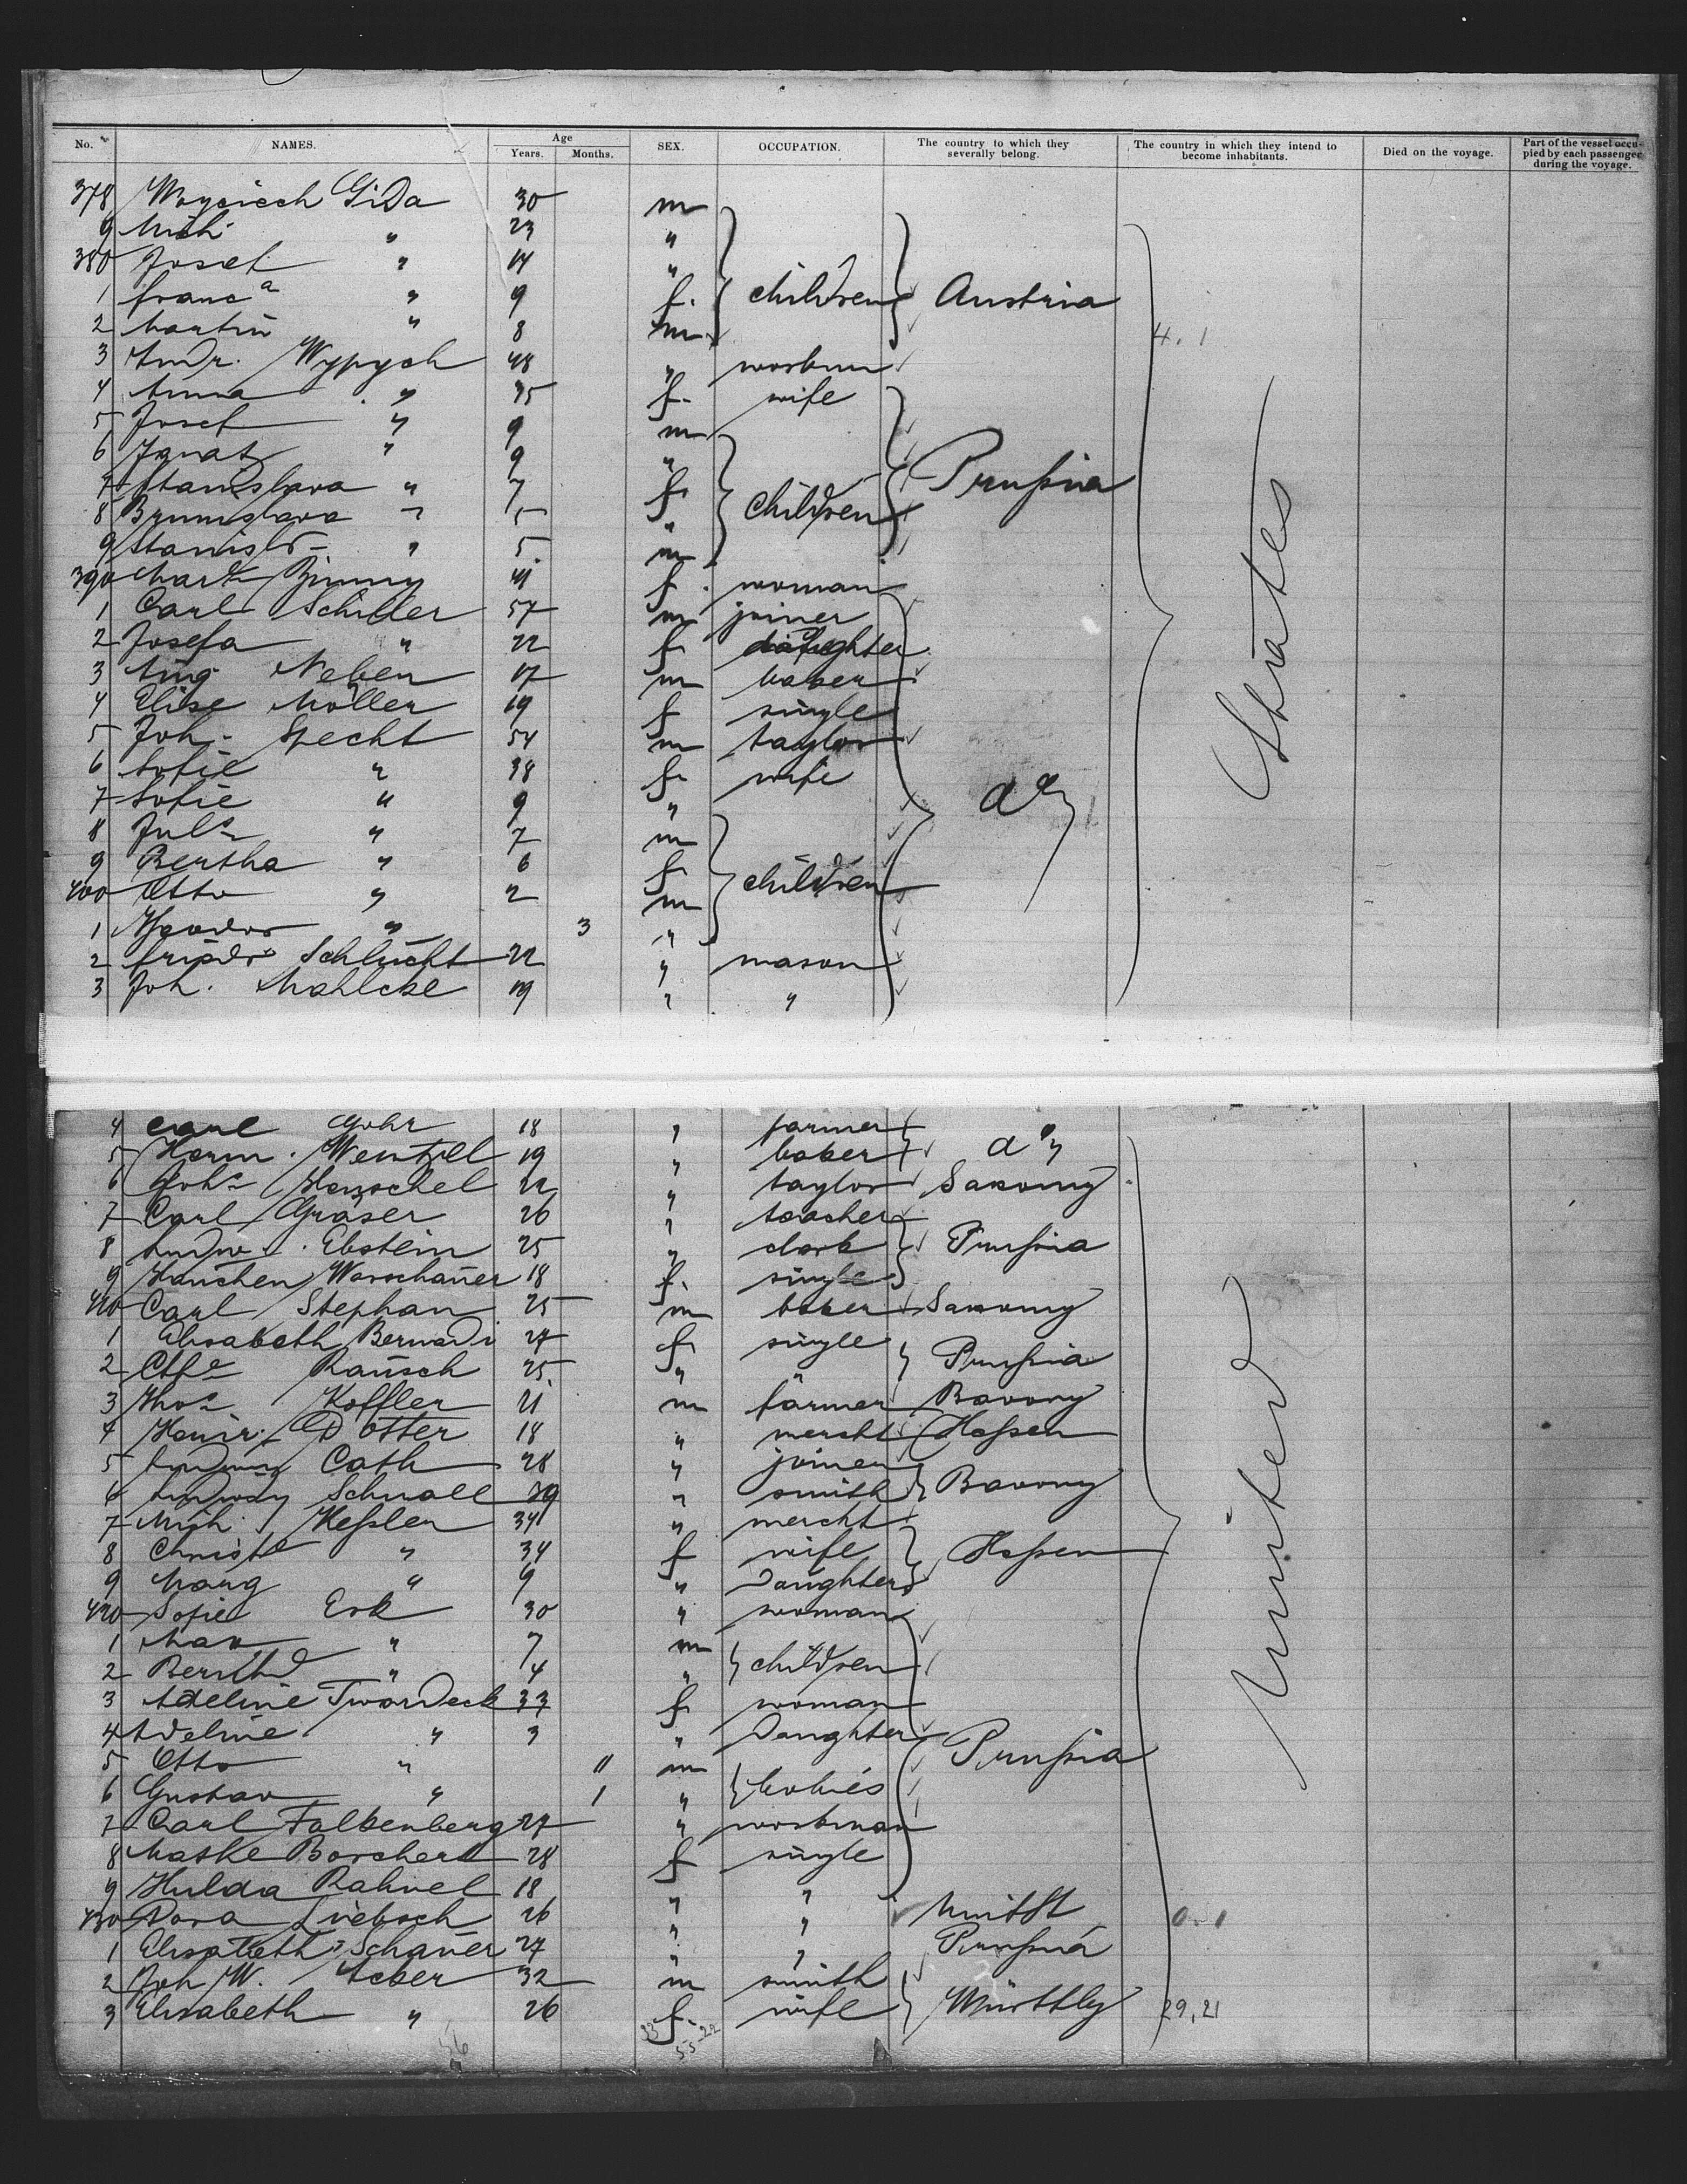 No. NAMES. Age Years. Months. SEX. OCCUPATION. The country to which they severally belong. The country in which they intend to become inhabitants. Died on the voyage. Part of the vessel occupied by each passenger during the voyage.
378 Woyciech Gida 30 m
9 Mich " 23 "
380 Josef " 14 "
1 Franc a " 9 f. children Austria
2 Martin " 8 m 4. 1
3 Andr. Wypych 48 " workm
4 Anna " 35 f. wife
5 Josef " 9 m
6 Ignatz " 9 "
7 Stanislava " 7 f Prußia
8 " 5 " Children
9 Stanisl " 5 m
390 44 f. woman
1 Carl Schiller 57 m joiner
2 Josefa " 22 f daughter
3 Aug Neben 17 m baker
4 Elise Möller 19 f single
5 Joh. Specht 54 m taylor
6 Sofie " 38 f wife do
7 Sofie " 9 "
8 Juls " 7 m
9 Bertha " 6 f children
400 Otto " 2 m
1 " 3 "
2 Friedr Schlücht 22 " mason
3 Joh. Mahlcke 19 " "
States
4 Carl Gohr 18 " farmer
5 Herm. Wentzell 19 " baker do
6 Johs Henschel 22 " taylor Saxony
7 Carl Gräser 26 " teacher
8 Ludw. Ebstein 25 " clerk Prußia
9 Hanchen Warschauer 18 f. single
410 Carl Stephan 25 m baker Saxony
1 Elisabeth Bernardi 27 f single
2 Rausch 25 " Prußia
3 Koffler 21 m farmer Bavony
4 Heinr. Dotter 18 " mercht Heßen
5 Ludwig Cath 28 " joiner
6 Ludwig Schnall 39 " smith Bavony
7 Mich. Keßler 34 " mercht
8 Christe " 34 f wife Heßen
9 Marg " 9 " Daughter
420 Sofie Erk 30 " woman
1 Max " 7 m
2 Bernhd " 4 " children
3 Adeline Twardeck 33 f woman
4 Adeline " 3 " Daughter
5 Otto " 11 m Prußia
6 Gustav " 1 " babies
7 Carl Falkenberg 27 " workman
8 Borchert 28 f single
9 Hulda Rahnel 18 " "
430 Dora Liebsch 26 " " UnitSt
1 Elisabeth Schauer 27 " " Prußia
2 Joh W. Acker 32 m smith
3 Elisabeth " 26 f. wife Württbg 29,21
United